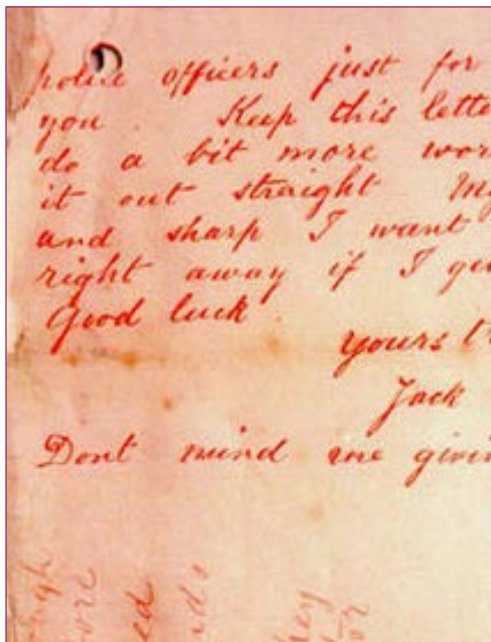 police officers just for
you. Keep this lette
do a bit more wor
it out straight My
and sharp I want
right away if I ge
Good luck.
yours t
Jack
Dont mind me givin